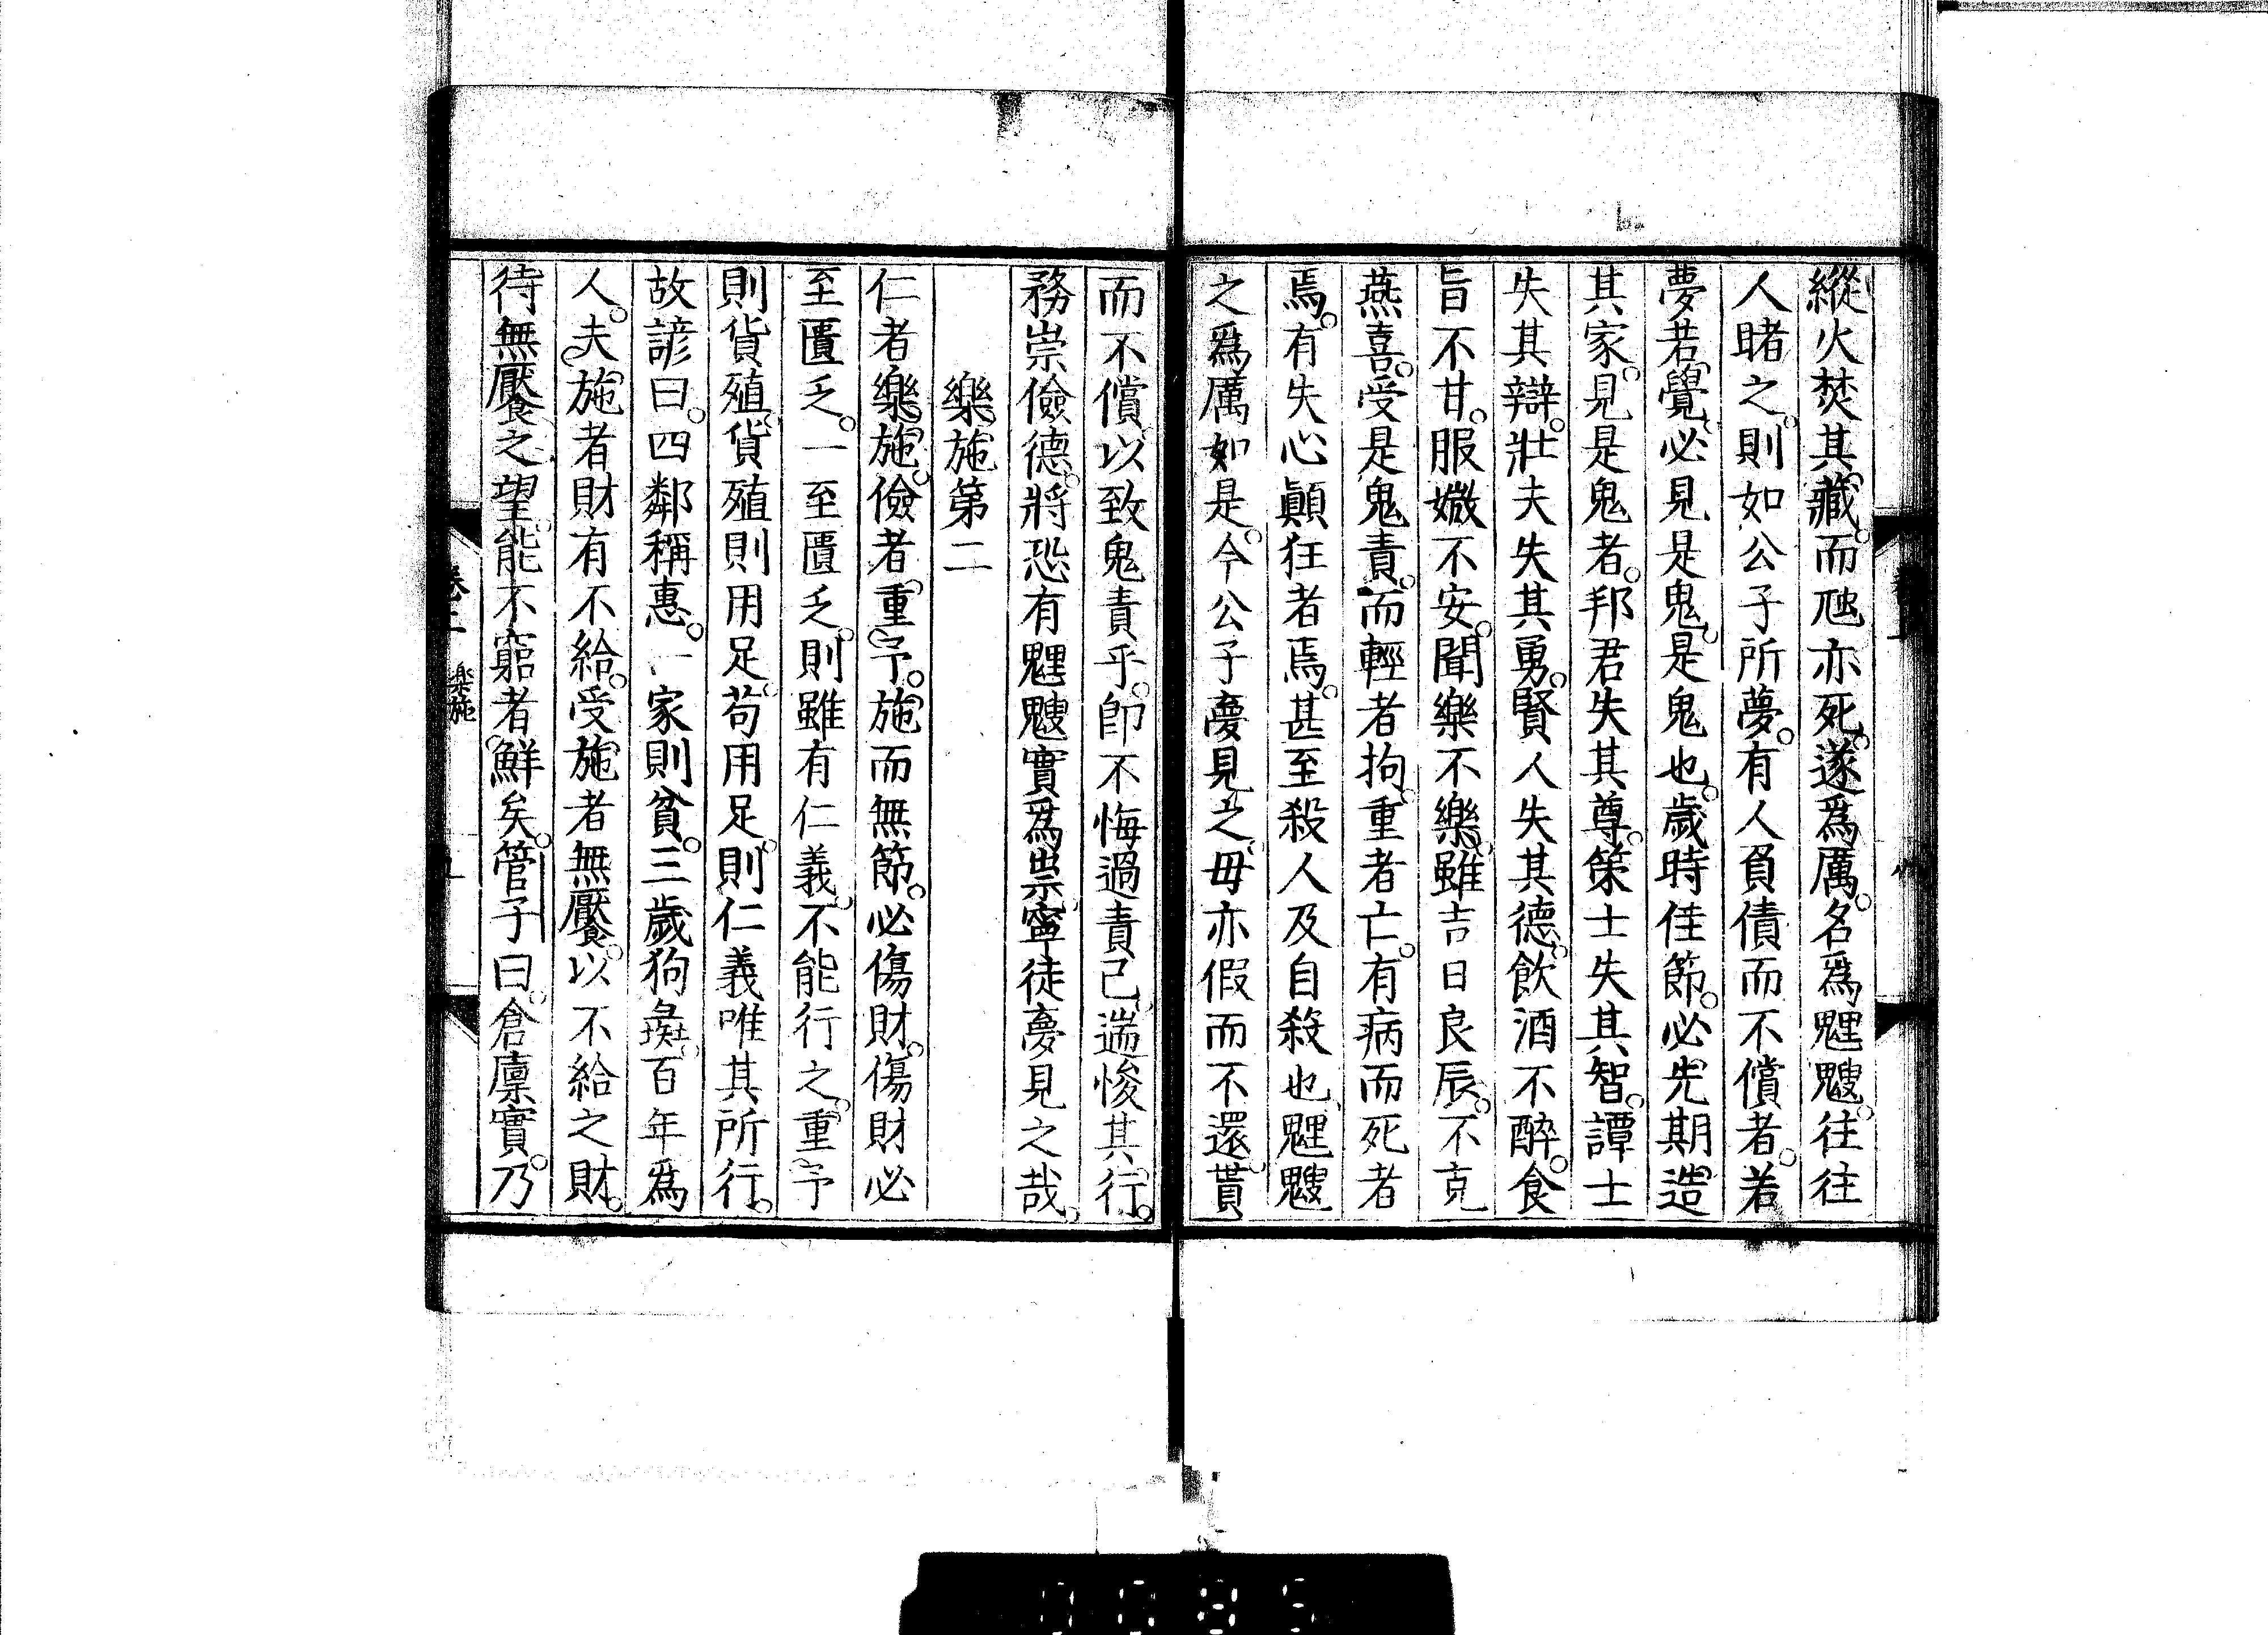 縱火焚其藏。而虺亦死。遂爲厲。名爲魓魓。往往
人睹之。則如公子所夢。有人負債而不償者。若
夢若覺。必見是鬼。是鬼也。歲時佳節。必先期造
其家。見是鬼者。邦君失其尊。策士失其智。譚士
失其辯。壯夫失其勇。賢人失其德。飲酒不醉。食
旨不甘。服媺不安。聞樂不樂。雖吉日良辰。不克
燕喜。受是鬼責。而輕者拘。重者亡。有病而死者
焉。有失心顚狂者焉。甚至殺人及自殺也。
之爲厲如是。今公子夢見之。毋亦假而不還。貰
而不償。以致鬼責乎。卽不悔過責己。遄悛其行。
務崇儉德。將恐有實爲祟。寧徒夢見之哉。
樂施第二
仁者樂施。儉者重予。施而無節。必傷財。傷財必
至匱乏。一至匱乏。則雖有仁義。不能行之。重予
則貨殖。貨殖則用足。苟用足。則仁義唯其所行。
故諺曰。四鄰稱惠。一家則貧。三歲狗彘。百年爲
人。夫施者財有不給。受施者無饜。以不給之財。
待無饜之望。能不窮者鮮矣。管子曰。倉廩實。乃
樂施